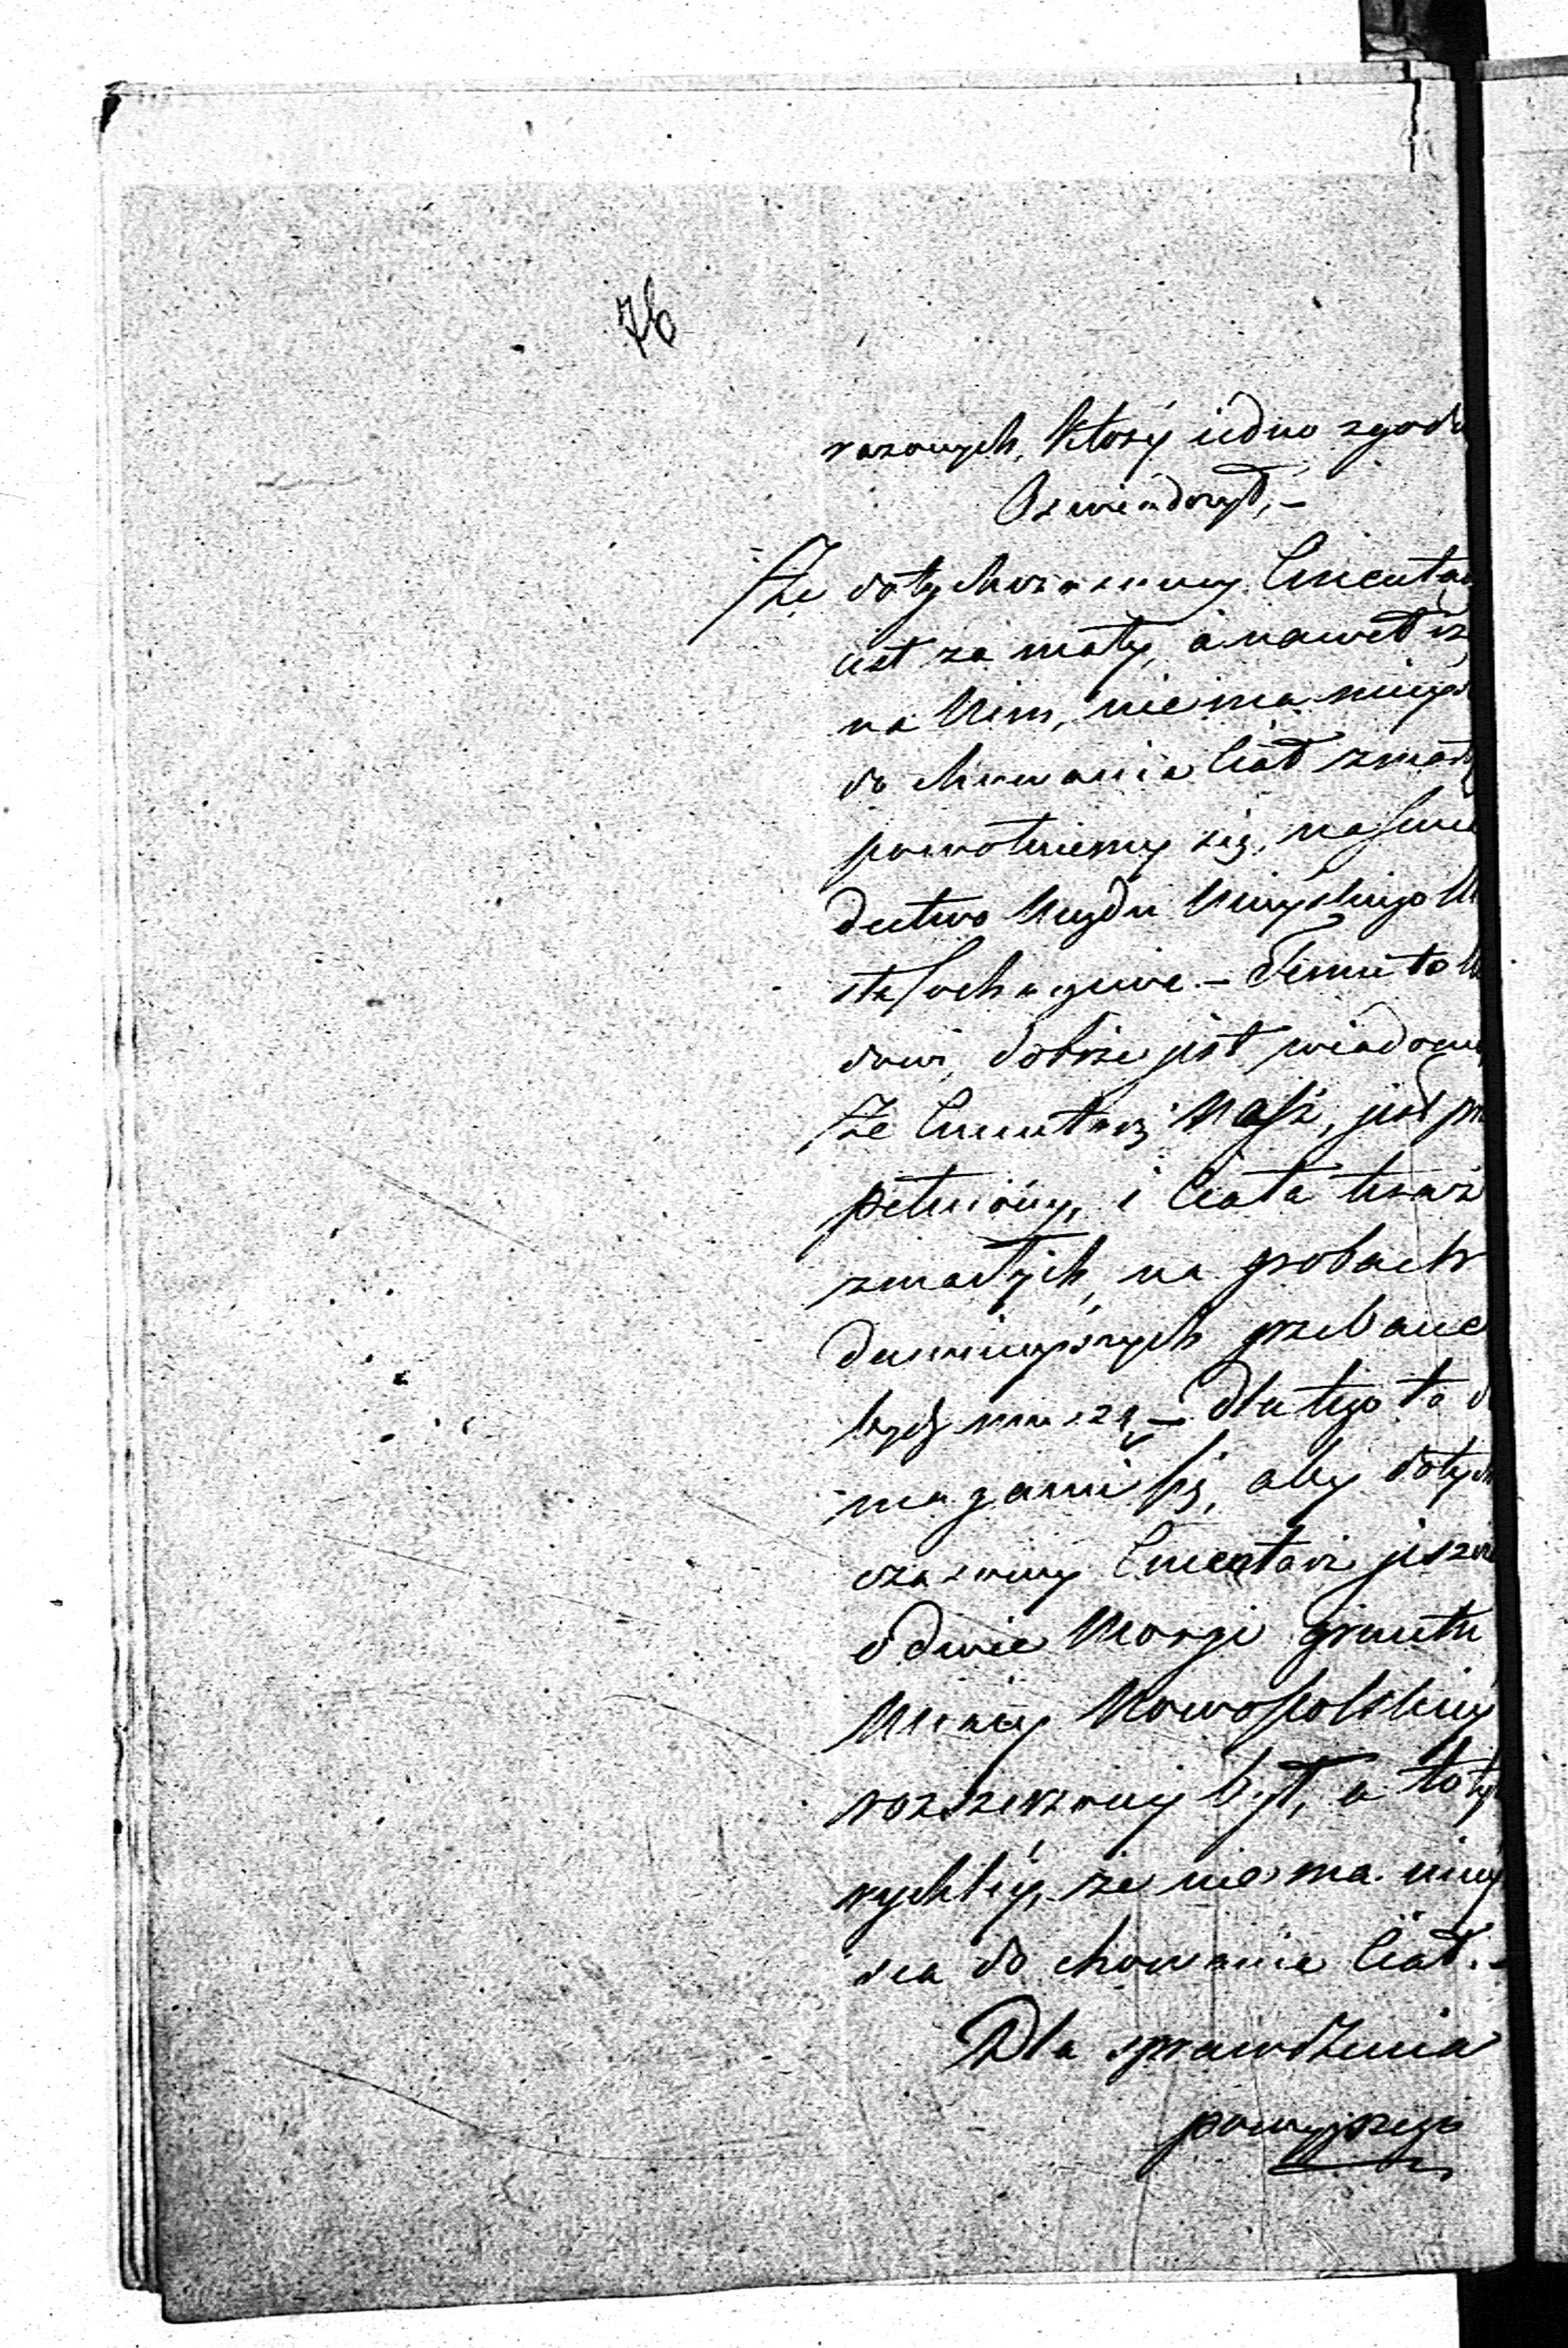 76
razowych, którÿ iedno zgod
Oswiadczył, –
Że dotychczasowy Cmenta
iest za mały, a nawet iż
na Nim, niema mieys
do chowania Ciał zmarł
powołuiemy się, na swia
dectwo Urzędu Mieyskiego M
sta Sochaczewa. – Temu to U
dowi, dobrze jest wiadomo
Że Cmentarz Nasz, jest prz
pełniony, i Ciała teraz
zmarłych, na grobach
dawnieyszych grzebane
bydź muszą – dla tego to d
magamÿ się, aby dotych
czasowy Cmentarz jeszcze
o dwie Morgi gruntu
Nowopolskiey
rozszerzony był, a to ty
rychléy, że nie ma miey
sca do chowania Ciał. –
Dla sprawdzenia
powyższego